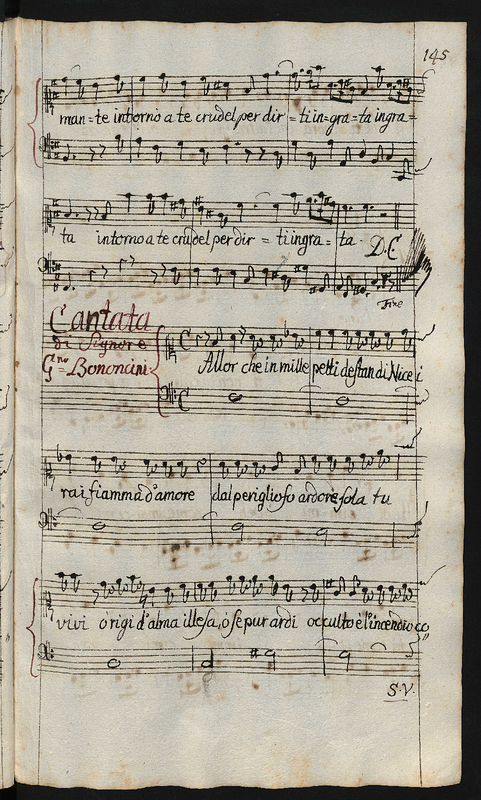 145
man=te intorno a te crudel per dir=ti in=gra=ta ingra=
ta intorno a te crudel per dir=ti ingra=ta D.C
Fine
Cantata
di Signore
G.no= Bononcini
Allor che in mille petti destan di Nice i
rai fiamma d'amore dal periglioso ardore sola tu
vivi o rigid'alma illesa, ò se pur ardi occulto è l'incendio
S.V.